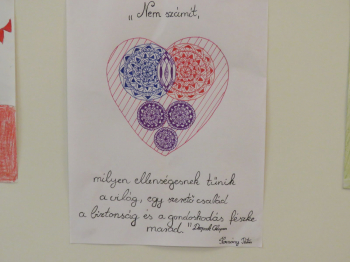 „Nem számít,
milyen ellenségesnek tűnik
a világ, egy szerető család
a biztonság és a gondoskodás fészke
marad."